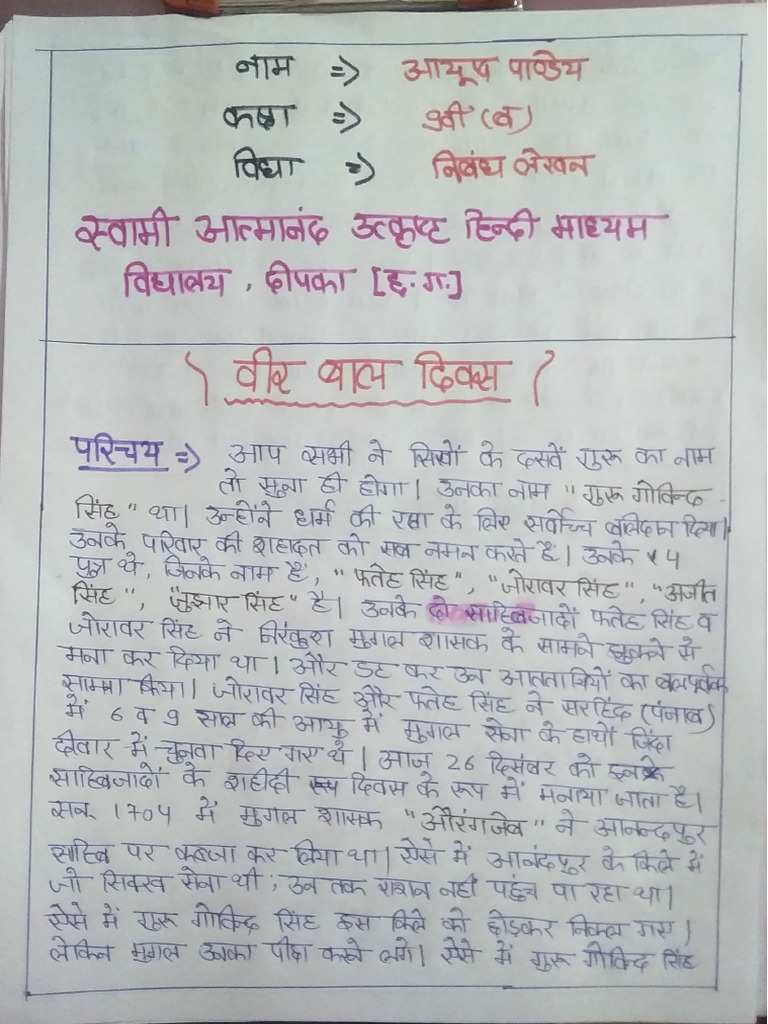 नाम => आयूष पाण्डेय
कक्षा => 9वीं (ब)
विधा => निबंध लेखन
स्वामी आत्मानंद उत्कृष्ट हिन्दी माध्यम
विद्यालय , दीपका [छ. ग.]
वीर बाल दिवस
परिचय => आप सभी ने सिखों के दसवें गुरू का नाम
तो सुना ही होगा। उनका नाम " गुरू गोविन्द
सिंह" था। उन्होंने धर्म की रक्षा के लिए सर्वोच्च बलिदान दिया।
उनके परिवार की शहादत को सब नमन करते है। उनके 4
पुत्र थे, जिनके नाम है, "फतेह सिंह", "जोरावर सिंह", "अजीत
सिंह", "जुझार सिंह" है। उनके दो साहिबजादों फतेह सिंह व
जोरावर सिंह ने निरंकुश मुगल शासक के सामने झुकने से
मना कर दिया था। और डट कर उन आततायियों का बलपूर्वक
सामना किया। जोरावर सिंह और फतेह सिंह ने सरहिंद (पंजाब)
में 6 व 9 साल की आयु में मुगल सेना के हाथों जिंदा
दीवार में चुनवा दिए गए थे। आज 26 दिसंबर को इनके
साहिबजादों के शहीदी दिवस के रूप में मनाया जाता है।
सन् 1704 में मुगल शासक "औरंगजेब" ने आनन्दपुर
साहिब पर कब्जा कर लिया था। ऐसे में आनंदपुर के किले में
जो सिक्ख सेना थी; उन तक राशन नहीं पहुंच पा रहा था।
ऐसे में गुरू गोविन्द सिंह इस किले को छोड़कर निकल गए।
लेकिन मुगल उनका पीछा करने लगे। ऐसे में गुरू गोविन्द सिंह